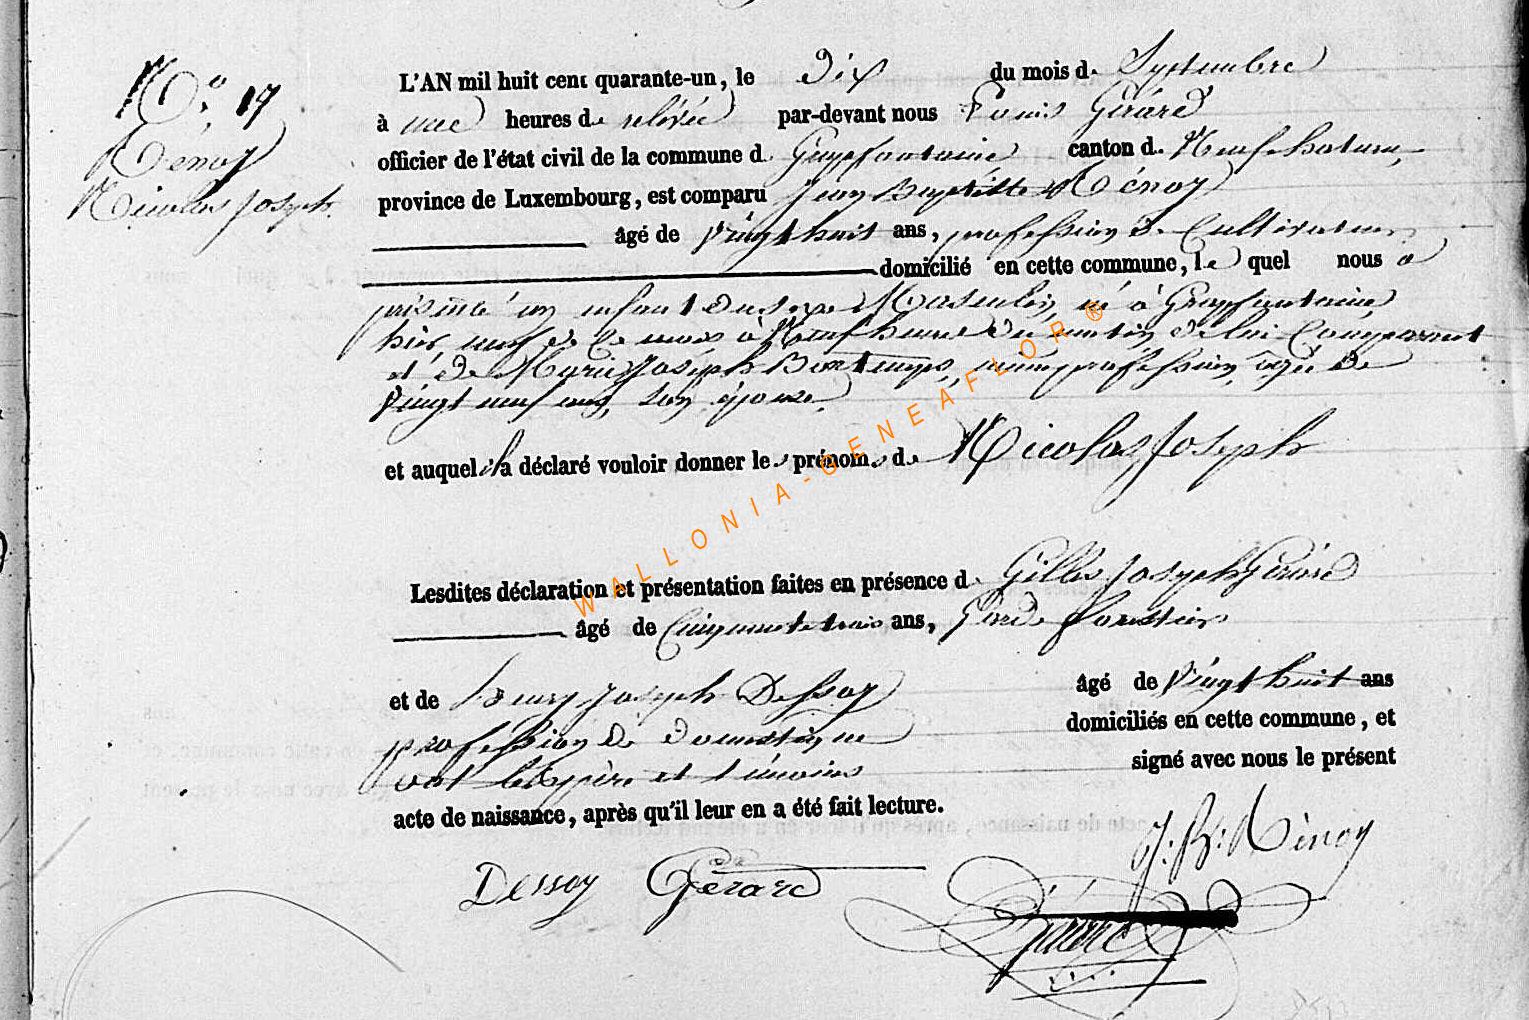 N° 17
Nicolas Joseph
L'AN mil huit cent quarante-un, le Dix du mois de Septembre
à une heures de relevée par-devant nous Louis Gérard
officier de l'état civil de la commune de Grapfontaine canton de Neufchateau,
province de Luxembourg, est comparu Jean Baptiste
âgé de vingt huit ans, profession de Cultivateur
domicilié en cette commune, le quel nous a
présenté un enfant du sexe Masculin, né à Grapfontaine
hier neuf de ce mois à Neuf heures du matin de lui Comparant
et de Marie Joseph Bontemps, même profession, agée de
vingt neuf ans, son épouse,
et auquel il a déclaré vouloir donner les prénoms de Nicolas Joseph
Lesdites déclaration et présentation faites en présence de Gilles Joseph Gérard
âgé de Cinquante trois ans, Garde forestier
et de henry Joseph Dessoy âgé de vingt huit ans
profession de domestique domiciliés en cette commune, et
ont les père et témoins signé avec nous le présent
acte de naissance, après qu'il leur en a été fait lecture.
J: B:
Dessoy Gérard
Gérard
WALLONIA-GENEAFLOR ®